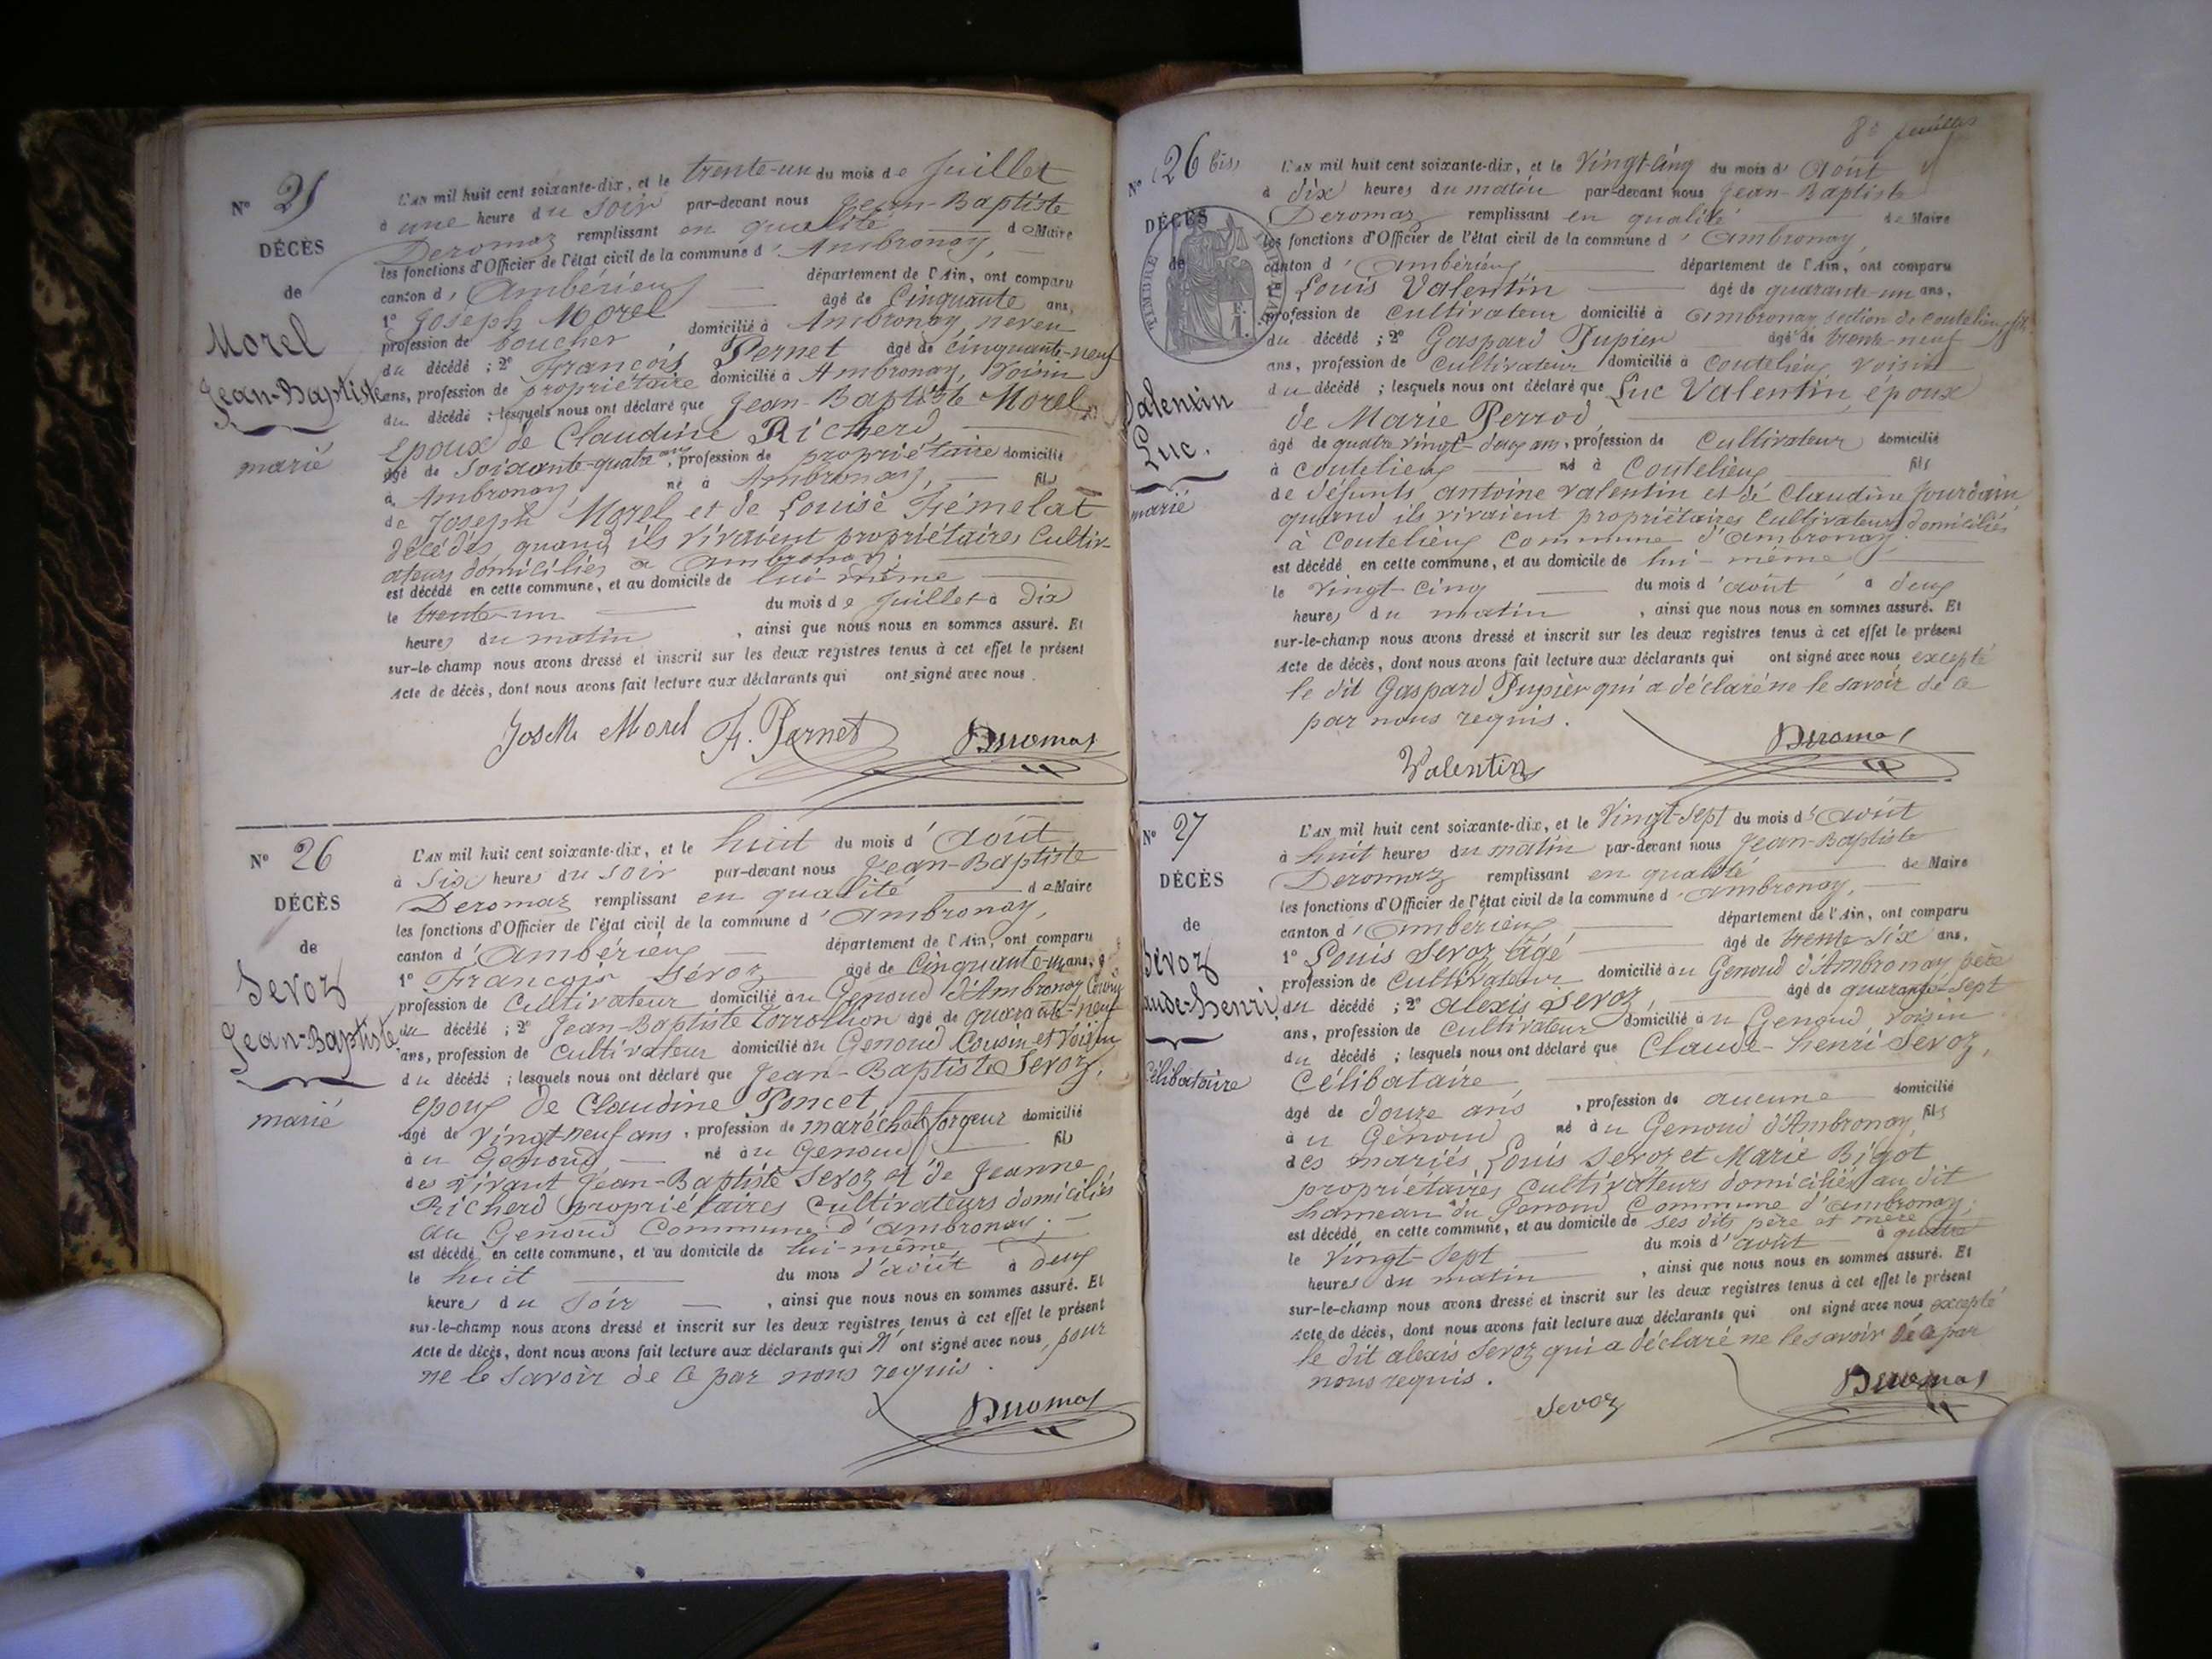 N° 25
DÉCÈS
de
Morel
Jean-Baptiste
marié
L'AN mil huit cent soixante-dix, et le trente-un du mois de Juillet
à une heure du soir par-devant nous Jean-Baptiste
Deromaz remplissant en qualité de Maire
les fonctions d'Officier de l'état civil de la commune d'Ambronay,
canton d'Ambérieux département de l'Ain, ont comparu
1° Joseph Morel âgé de Cinquante ans,
profession de boucher domicilié à Ambronay, neveu
du décédé ; 2° François Pernet âgé de cinquante-neuf
ans, profession de propriétaire domicilié à Ambronay, Voisin
du décédé ; lesquels nous ont déclaré que Jean-Baptiste Morel,
époux de Claudine Richerd,
âgé de soixante-quatre ans, profession de propriétaire domicilié
à Ambronay né à Ambronay, fils
de Joseph Morel et de Louise Frémelat
décédés, quand ils vivaient propriétaires Cultiv-
ateurs domiciliés à Ambronay;
est décédé en cette commune, et au domicile de lui-même
le trente-un du mois de Juillet à dix
heures du matin, ainsi que nous nous en sommes assuré. Et
sur-le-champ nous avons dressé et inscrit sur les deux registres tenus à cet effet le présent
Acte de décès, dont nous avons fait lecture aux déclarants qui ont signé avec nous.
Morel F. Pernet Deromaz
N° 26
DÉCÈS
de
Sevoz
Jean-Baptiste
marié
L'AN mil huit cent soixante-dix, et le huit du mois d'Août
à six heures du soir par-devant nous Jean-Baptiste
Deromaz remplissant en qualité de Maire
les fonctions d'Officier de l'état civil de la commune d'Ambronay,
canton d'Ambérieux département de l'Ain, ont comparu
1° François Sévoz âgé de Cinquante-un ans,
profession de Cultivateur domicilié au Genoud d'Ambronay Cousin
du décédé ; 2° Jean-Baptiste âgé de quarante-neuf
ans, profession de Cultivateur domicilié au Genoud Cousin et Voisin
du décédé ; lesquels nous ont déclaré que Jean-Baptiste Sevoz,
époux de Claudine Poncet,
âgé de vingt neuf ans, profession de maréchal forgeur domicilié
au Genoud né au Genoud fils
des vivant Jean-Baptiste Sevoz et de Jeanne
Richerd propriétaires Cultivateurs domiciliés
au Genoud Commune d'Ambronay;
est décédé en cette commune, et au domicile de lui-même
le huit du mois d'août à deux
heures du soir, ainsi que nous nous en sommes assuré. Et
sur-le-champ nous avons dressé et inscrit sur les deux registres tenus à cet effet le présent
Acte de décès, dont nous avons fait lecture aux déclarants qui n'ont signé avec nous, pour
ne le savoir de ce par nous requis.
Deromaz
8e feuillet
N° 26 bis
DÉCÈS
de
TIMBRE
Valentin
Luc.
marié
L'AN mil huit cent soixante-dix, et le Vingt-cinq du mois d'Août
à dix heures du matin par-devant nous Jean-Baptiste
Deromaz remplissant en qualité de Maire
les fonctions d'Officier de l'état civil de la commune d'Ambronay,
canton d'Ambérieux département de l'Ain, ont comparu
1° Louis Valentin âgé de quarante-un ans,
profession de Cultivateur domicilié à Ambronay section de coutelieux fils
du décédé ; 2° Gaspard Pupier âgé de trente-neuf
ans, profession de Cultivateur domicilié à Coutelieux, Voisin
du décédé ; lesquels nous ont déclaré que Luc Valentin, époux
de Marie Perrod
âgé de quatre vingt-deux ans, profession de Cultivateur domicilié
à Coutelieux né à Coutelieux fils
de défunts Antoine Valentin et de Claudine Jourdain
quand ils vivaient propriétaires Cultivateurs domiciliés
à Coutelieux Commune d'Ambronay.
est décédé en cette commune, et au domicile de lui-même
le vingt-cinq du mois d'août à deux
heures du matin, ainsi que nous nous en sommes assuré. Et
sur-le-champ nous avons dressé et inscrit sur les deux registres tenus à cet effet le présent
Acte de décès, dont nous avons fait lecture aux déclarants qui ont signé avec nous excepté
le dit Gaspard Pupier qui a déclaré ne le savoir de ce
par nous requis.
Valentin Deromaz
N° 27
DÉCÈS
de
Sévoz
aude-Henri
Célibataire
L'AN mil huit cent soixante-dix, et le Vingt-Sept du mois d'Août
à huit heures du matin par-devant nous Jean-Baptiste
Deromaz remplissant en qualité de Maire
les fonctions d'Officier de l'état civil de la commune d'Ambronay,
canton d'Ambérieux département de l'Ain, ont comparu
1° Louis Sevoz âgé âgé de trente-six ans,
profession de Cultivateur domicilié au Genoud d'Ambronay père
du décédé ; 2° Alexis Sevoz, âgé de quarante-sept
ans, profession de Cultivateur domicilié au Genoud, Voisin
du décédé ; lesquels nous ont déclaré que Claude-Henri Sevoz,
Célibataire
âgé de douze ans, profession de aucune domicilié
au Genoud né au Genoud d'Ambronay, fils
des mariés Louis Sevoz et Marie Bigot
propriétaires Cultivateurs domiciliés au dit
hameau du Genoud Commune d'Ambronay;
est décédé en cette commune, et au domicile de ses dits père et mère
le Vingt-Sept du mois d'août à quatre
heures du matin, ainsi que nous nous en sommes assuré. Et
sur-le-champ nous avons dressé et inscrit sur les deux registres tenus à cet effet le présent
Acte de décès, dont nous avons fait lecture aux déclarants qui ont signé avec nous excepté
le dit Alexis Sevoz qui a déclaré ne le savoir de ce par
nous requis.
Sevoz Deromaz